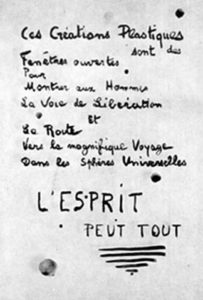 Ces Créations Plastiques
sont des
Fenêtres ouvertes
Pour
Montrer aux Hommes
La Voie de Libération
ET
La Route
Vers la magnifique Voyage
Dans les Sphères Universelles
L'ESPRIT
PEUT TOUT